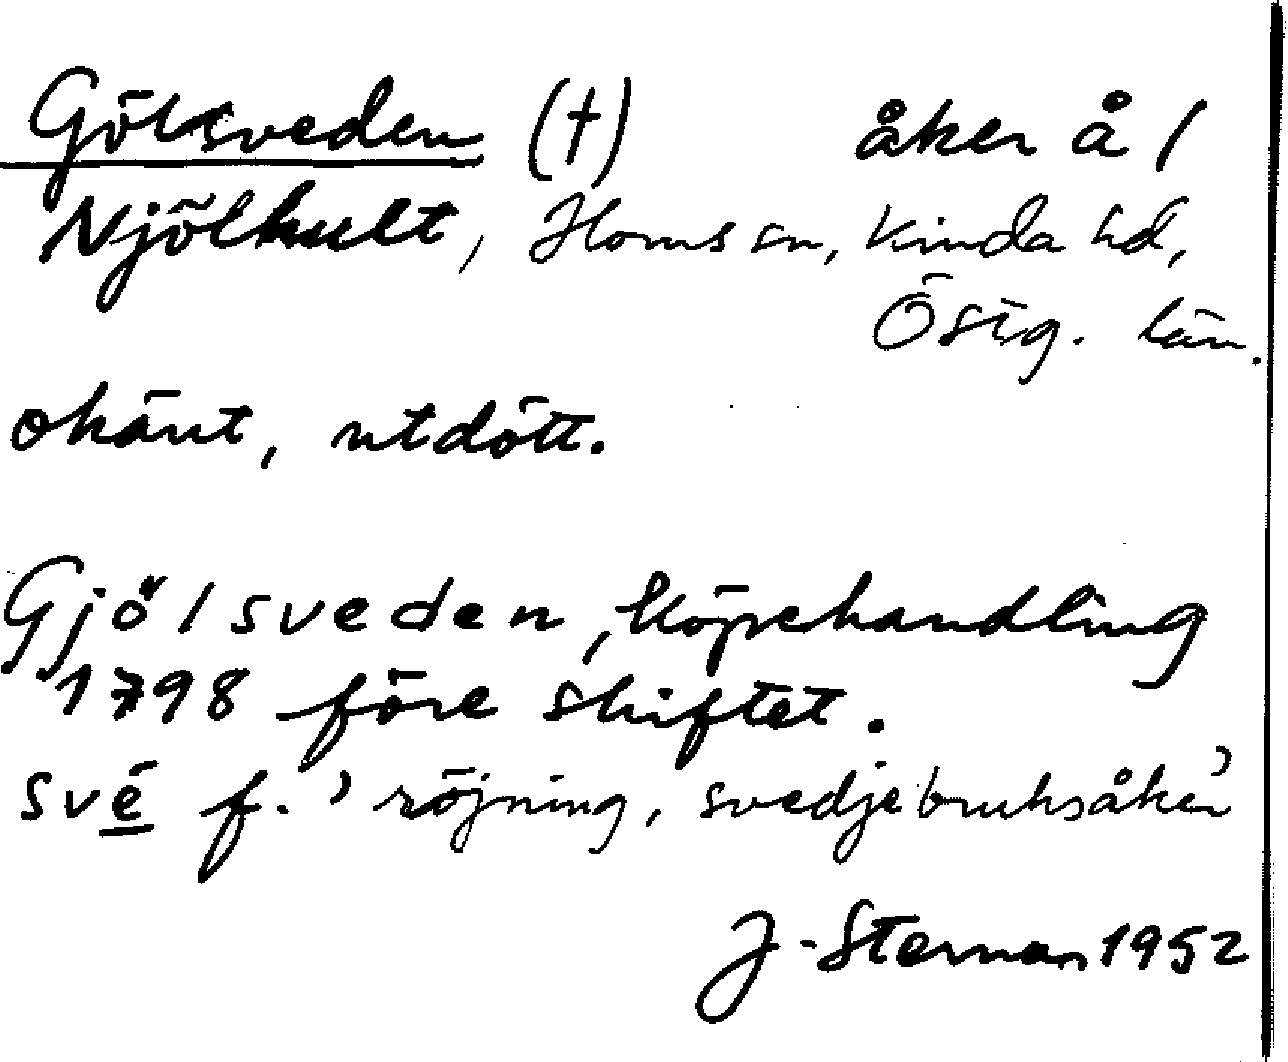 Gölsveden (†) åker å /
Njölhult, Horns sn, Kinda hd,
Östg. län.
okänt, utdött.
Gjölsveden, Köpehandling
1798 före skiftet.
své f. 'röjning, svedjebruksåker'
J. Sterner 1952